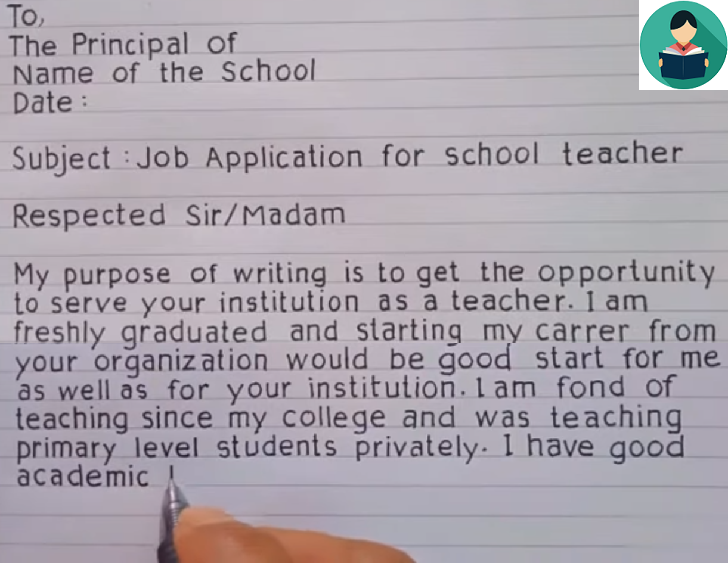 To,
The Principal of
Name of the School
Date :
Subject : Job Application for school teacher
Respected Sir/Madam
My purpose of writing is to get the opportunity
to serve your institution as a teacher. I am
freshly graduated and starting my carrer from
your organization would be good start for me
as well as for your institution. I am fond of
teaching since my college and was teaching
primary level students privately. I have good
academic